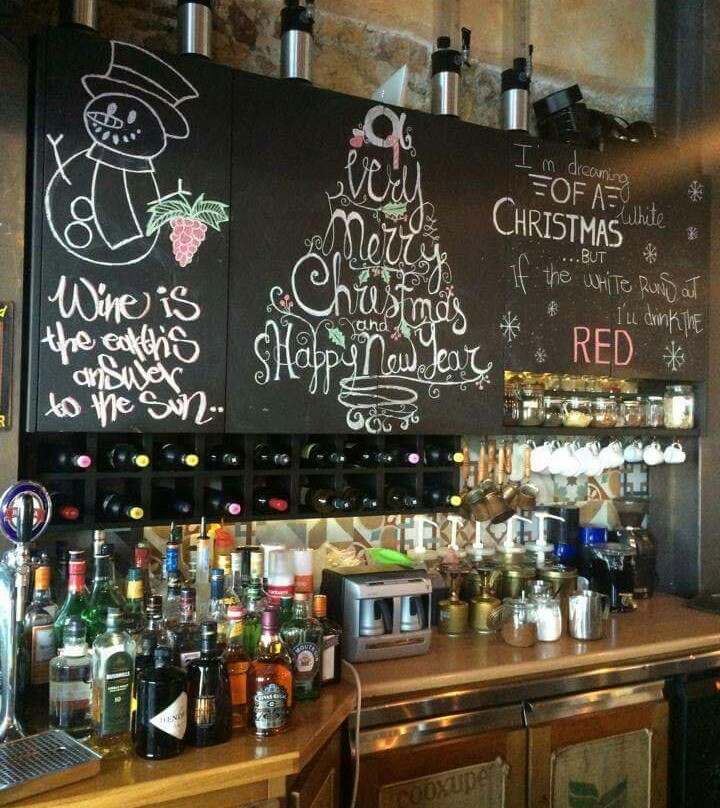 Wine is
the earth's
answer
to the sun..
a
very
Merry
Christmas
and
Happy New Year
I'm dreaming
OF A
White
CHRISTMAS
...BUT
If the WHITE RUNS out
I'll drink THE
RED
BUSHMILLS
10
HENDRICK'S
CHIVAS REGAL
cooxupé